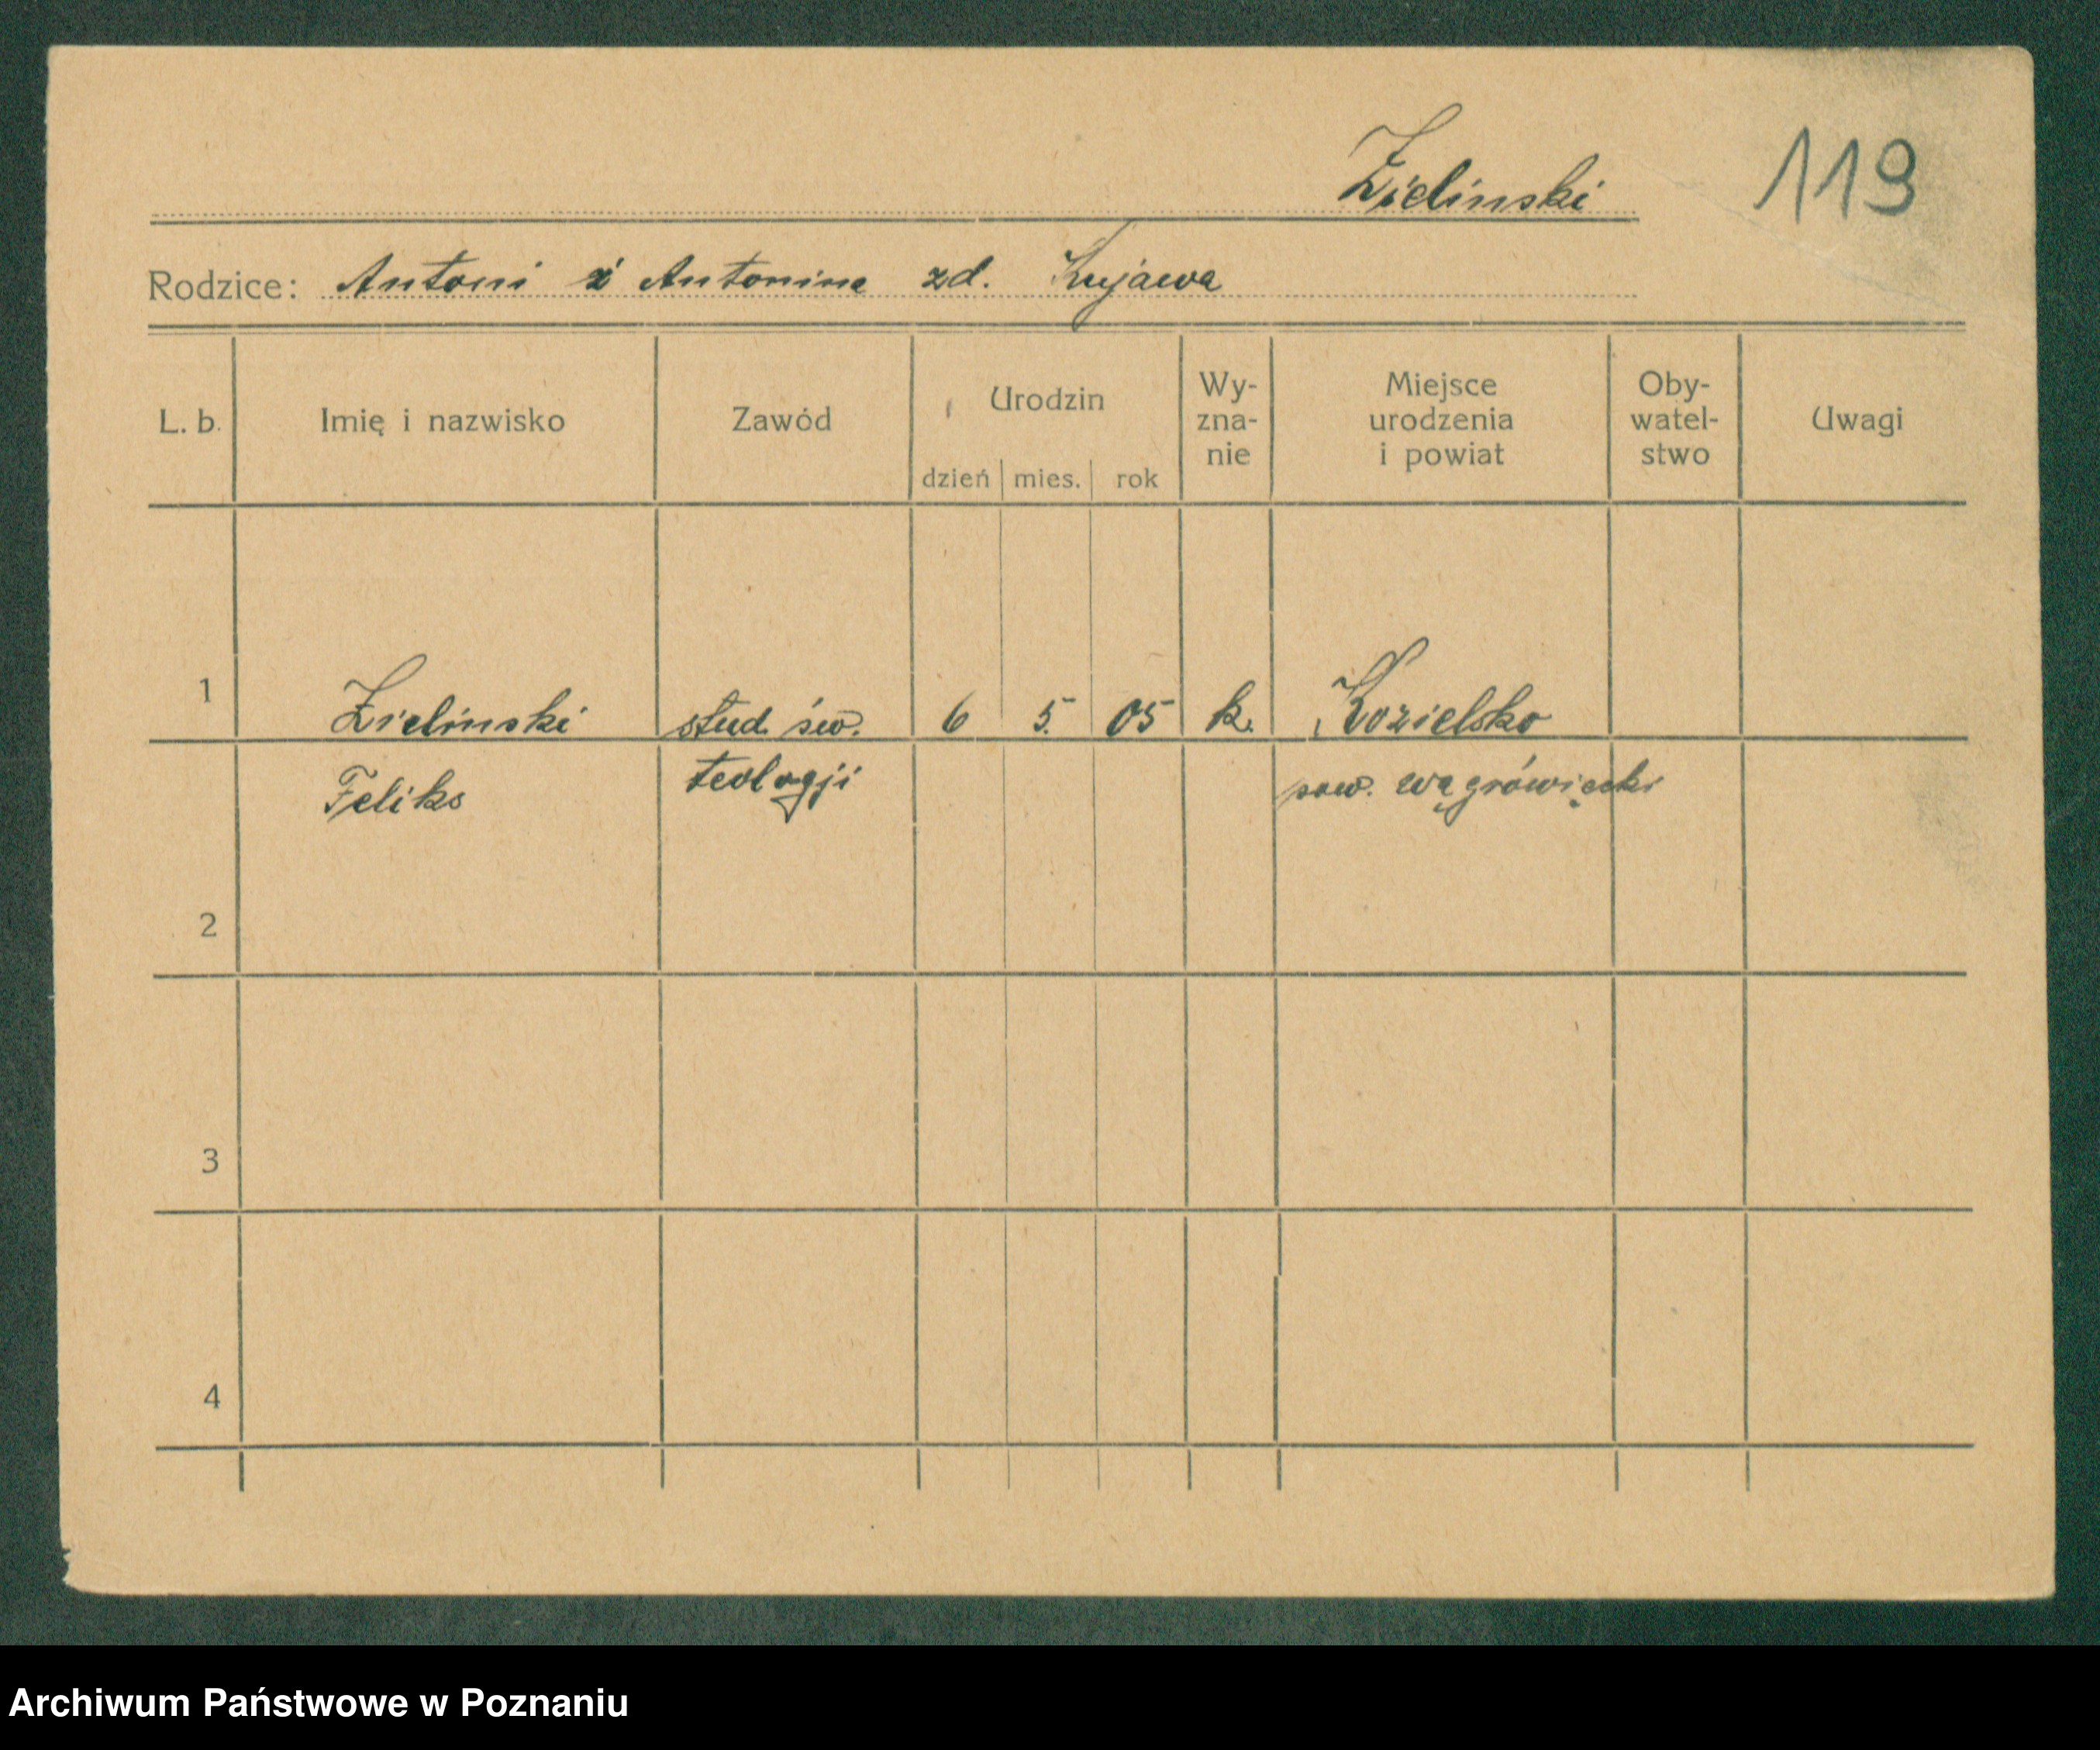 Zielinski 119
Rodzice: Antoni i Antonina zd. Kujawa
L. b. Imię i nazwisko Zawód Urodzin dzień mies. rok Wy-zna-nie Miejsce urodzenia i powiat Oby-watel-stwo Uwagi
1 Zielinski stud. św. 6 5. 05 k. Kozielsko
Feliks teologji pow. wągrówięcki
2
3
4
Archiwum Państwowe w Poznaniu